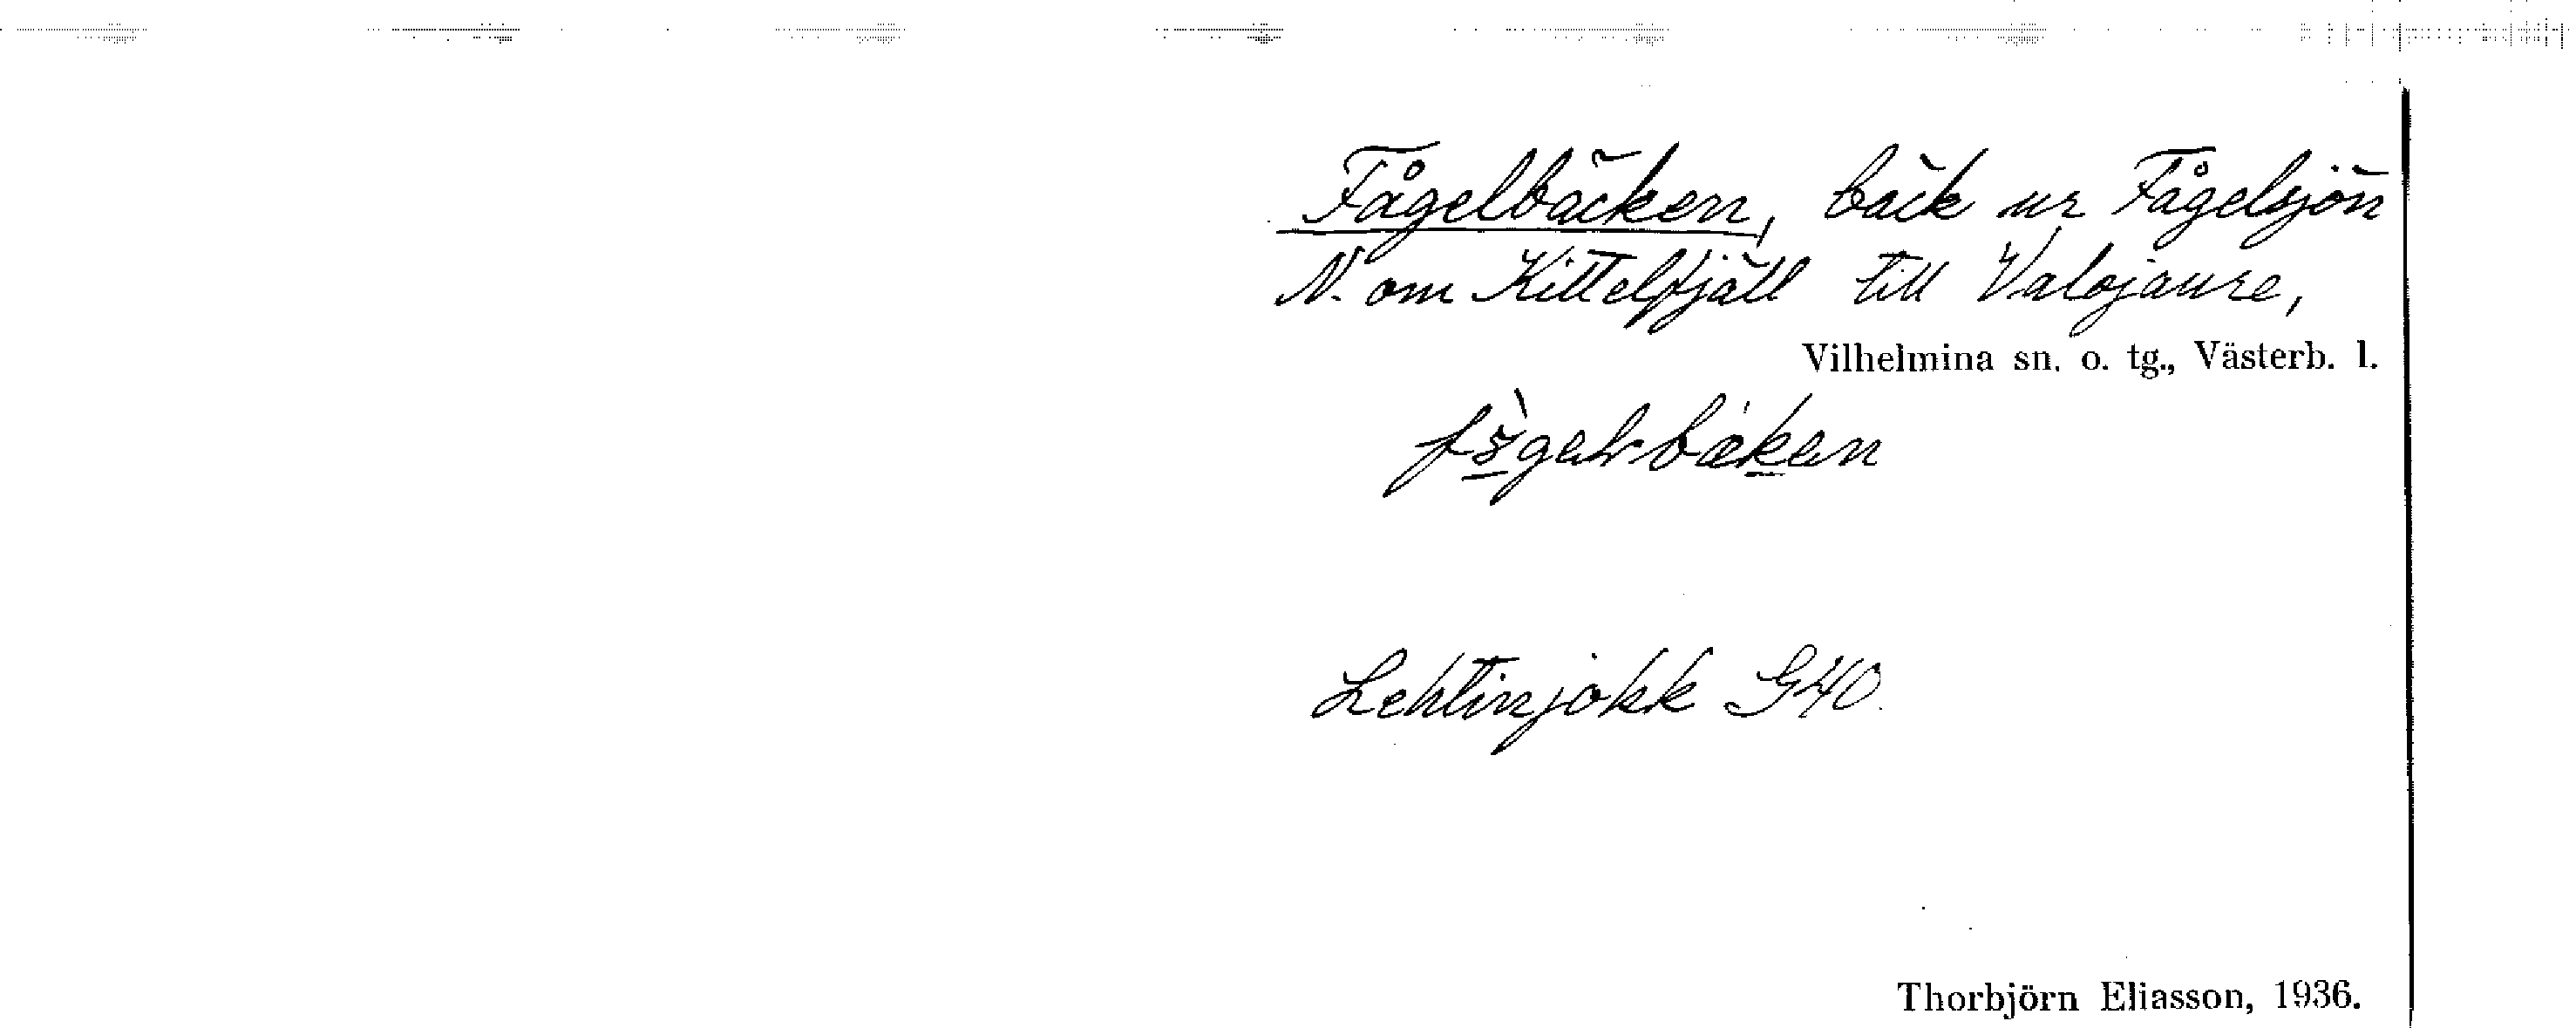 Fågelbäcken, bäck ur Fågelsjön
N. om Kittelfjäll till Valojaure,
Vilhelmina sn. o. tg., Västerb. l.
Lehtinjokk G40.
Thorbjörn Eliasson, 1936.